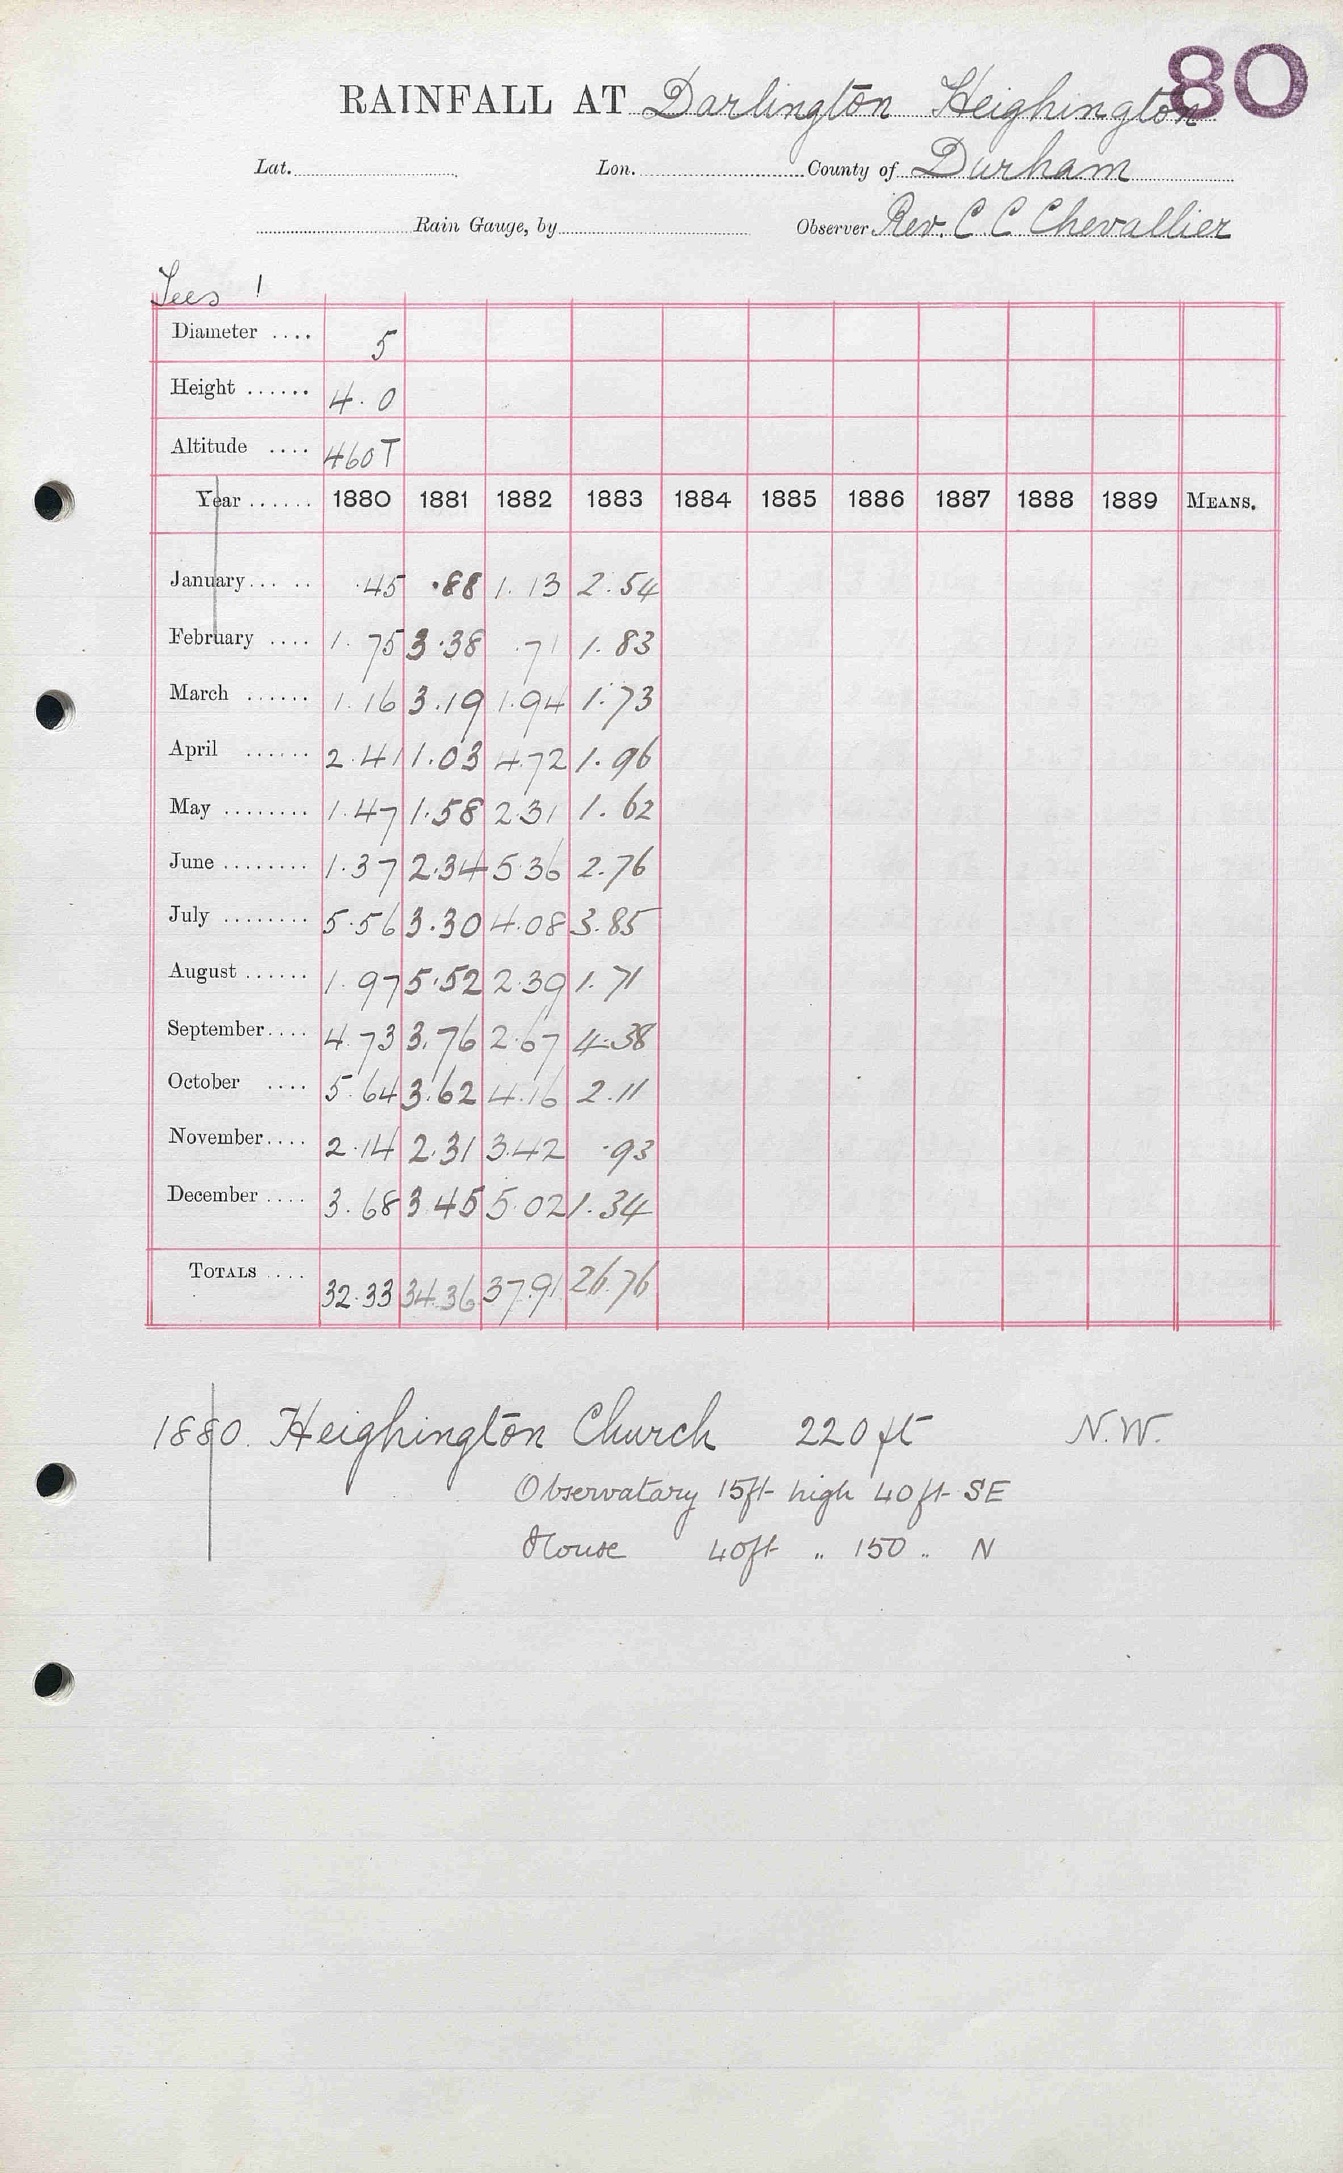 80
RAINFALL AT Darlington Heighington
Lat. Lon. County of Durham
Rain Gauge, by Observer Rev. C C Chevallier
Tees 1
Diameter .... 5
Height ...... 4.0
Altitude .... 460T
Year ...... 1880 1881 1882 1883 1884 1885 1886 1887 1888 1889 MEANS.
January ... .. .45 .88 1.13 2.54
February .... 1.75 3.38 .71 1.83
March ...... 1.16 3.19 1.94 1.73
April ...... 2.41 1.03 4.72 1.96
May ........ 1.47 1.58 2.31 1.62
June ........ 1.37 2.34 5.36 2.76
July ........ 5.56 3.30 4.08 3.85
August ...... 1.97 5.52 2.39 1.71
September .... 4.73 3.76 2.67 4.38
October .... 5.64 3.62 4.16 2.11
November .... 2.14 2.31 3.42 .93
December .... 3.68 3.45 5.02 1.34
TOTALS .... 32.33 34.36 37.91 26.76
1880. Heighington Church 220 ft N.W.
Observatary 15ft high 40ft SE
House 40ft " 150 " N